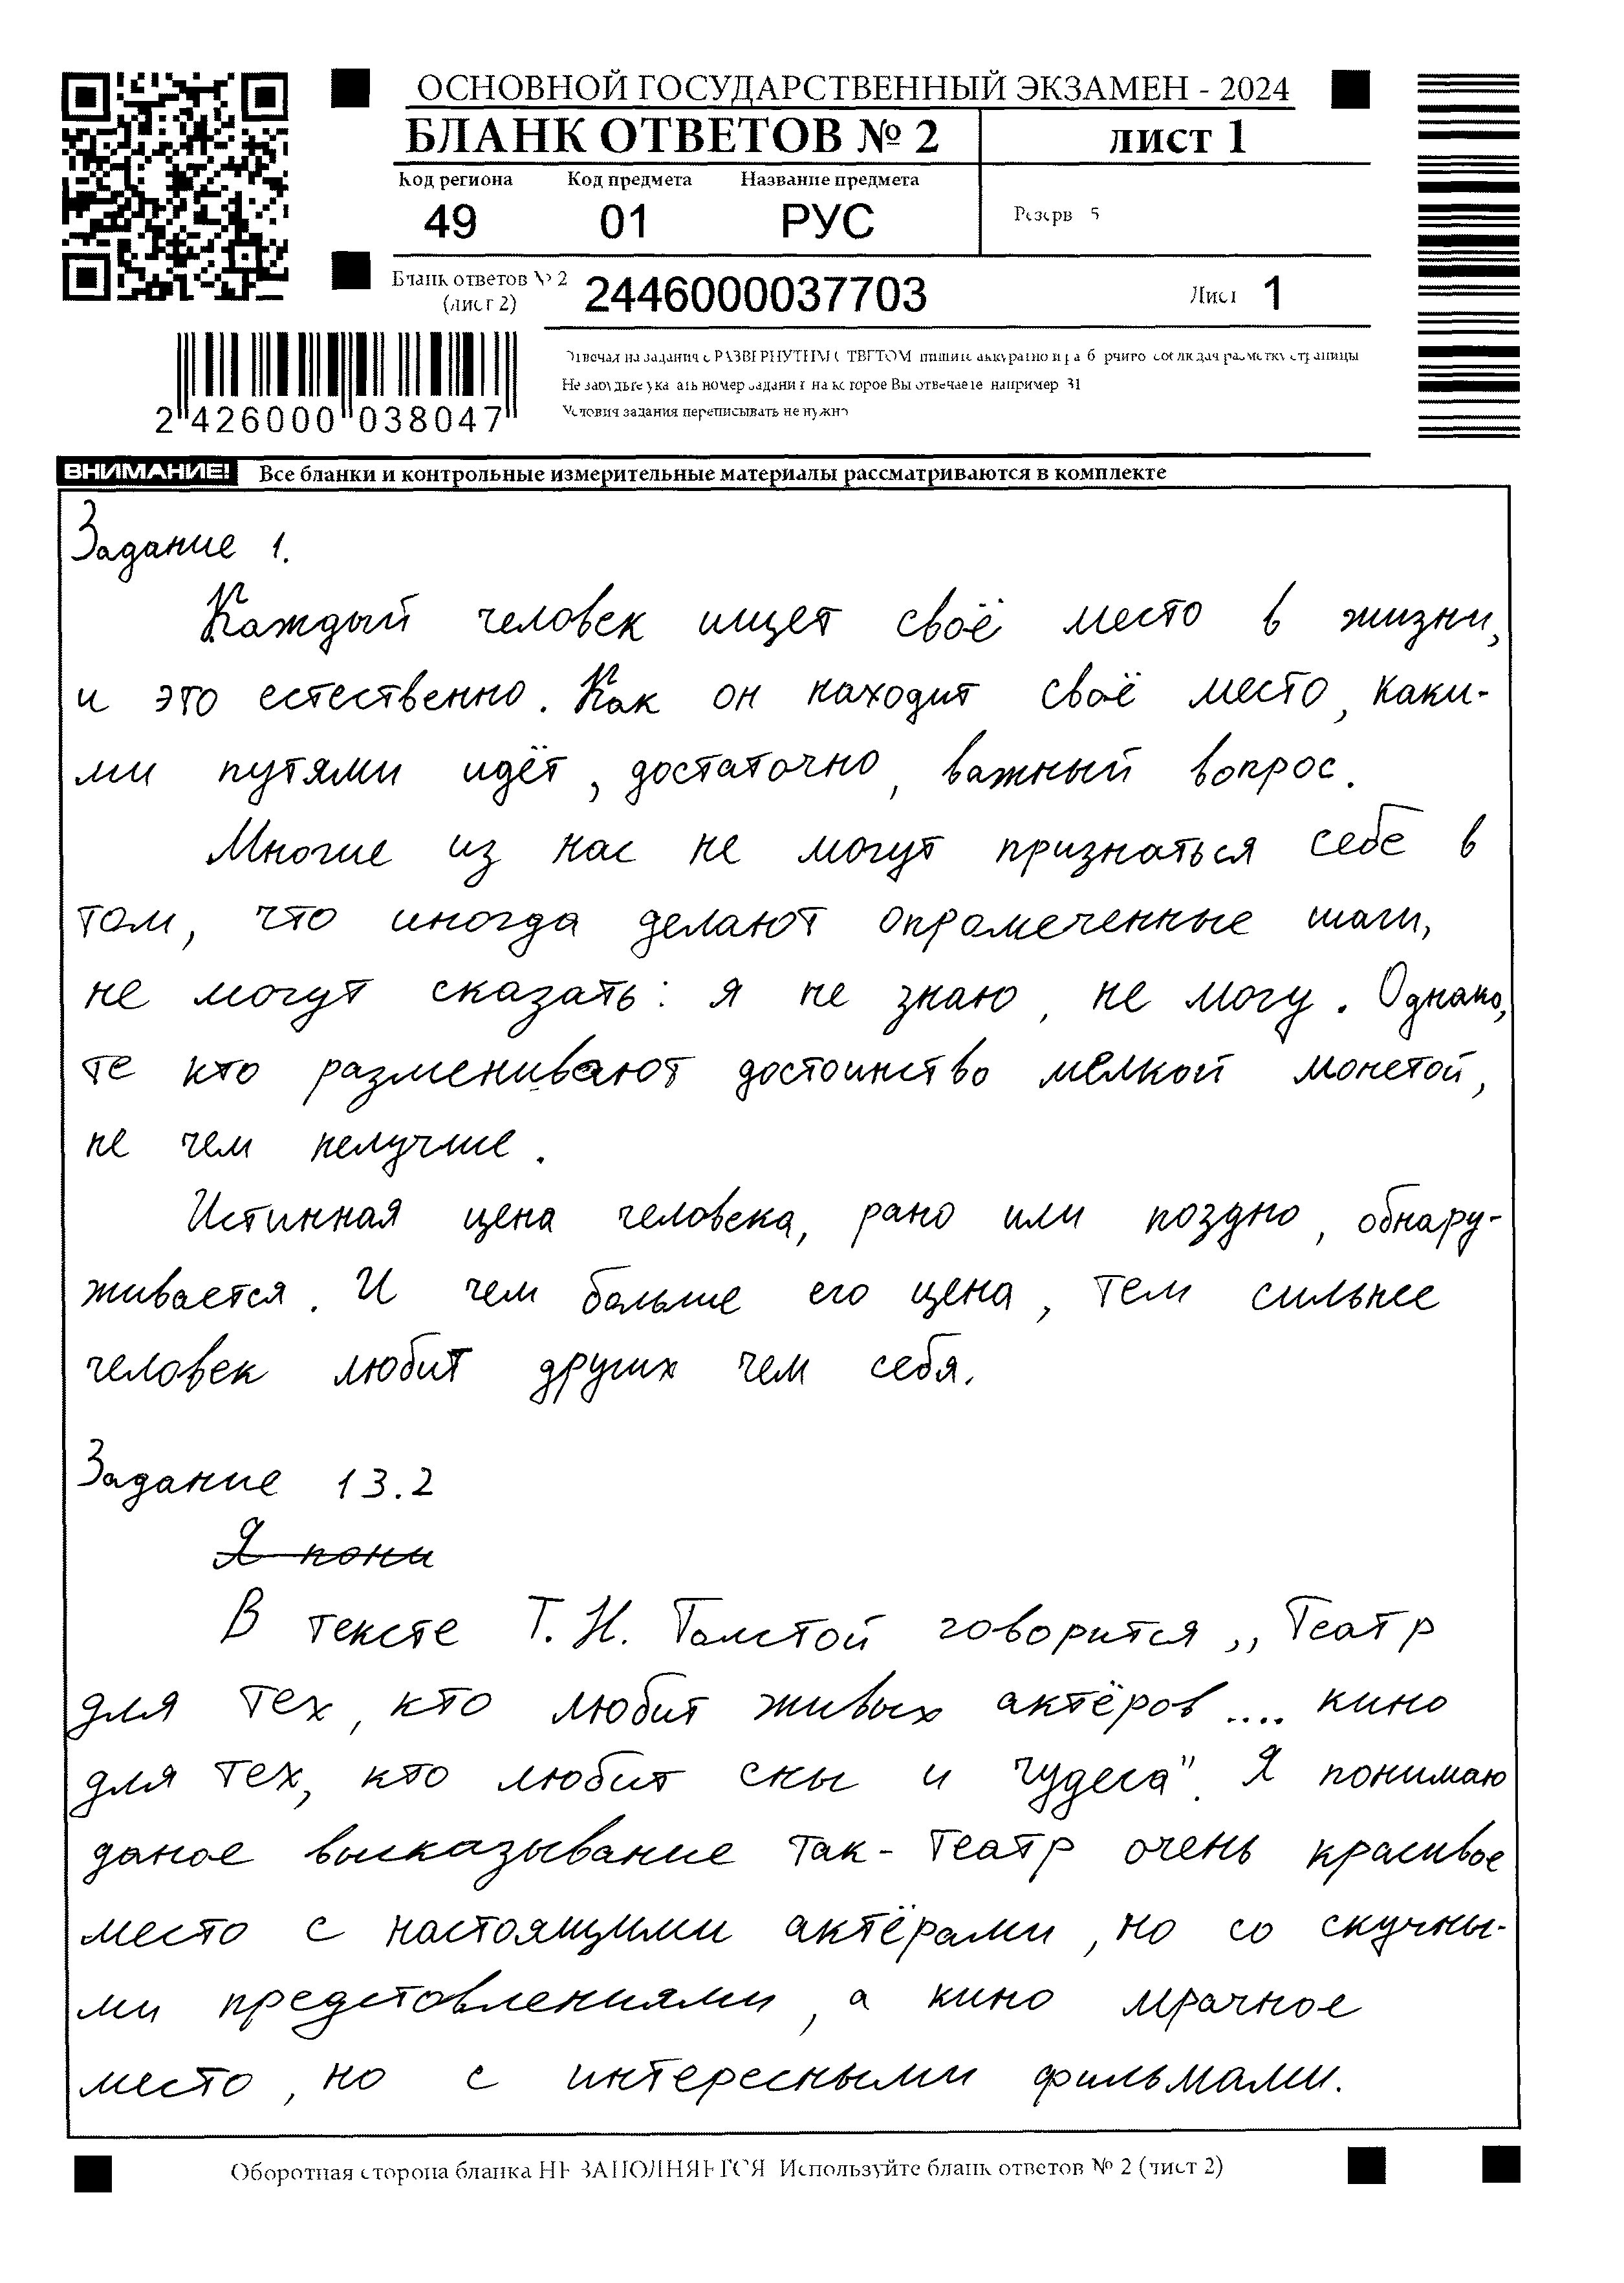 ОСНОВНОЙ ГОСУДАРСТВЕННЫЙ ЭКЗАМЕН - 2024
БЛАНК ОТВЕТОВ № 2 ЛИСТ 1
Код региона Код предмета Название предмета
49 01 РУС Резерв 5
Бланк ответов № 2
(лист 2) 2446000037703 Лист 1
Отвечая на задания с РАЗВЕРНУТЫМ ОТВЕТОМ пишите аккуратно и разборчиво соблюдая разметку страницы
Не забудьте указать номер задания на которое Вы отвечаете например 31
Условия задания переписывать не нужно
2 426000 038047
ВНИМАНИЕ! Все бланки и контрольные измерительные материалы рассматриваются в комплекте
Задание 1.
Каждый человек ищет своё место в жизни,
и это естественно. Как он находит своё место, каки-
ми путями идёт, достаточно, важный вопрос.
Многие из нас не могут признаться себе в
том, что иногда делают опрамеченные шаги,
не могут сказать: я не знаю, не могу. Однако,
те кто разменивают достоинство мелкой монетой,
не чем нелучше.
Истинная цена человека, рано или поздно, обнару-
живается. И чем больше его цена, тем сильнее
человек любит других чем себя.
Задание 13.2
Я пони
В тексте Т. Н. Толстой говорится ,,Театр
для тех, кто любит живых актёров .... кино
для тех, кто любит сны и чудеса". Я понимаю
даное высказывание так- театр очень красивое
место с настоящими актёрами, но со скучны-
ми представлениями, а кино мрачное
место, но с интересными фильмами.
Оборотная сторона бланка НЕ ЗАПОЛНЯЕТСЯ Используйте бланк ответов № 2 (лист 2)